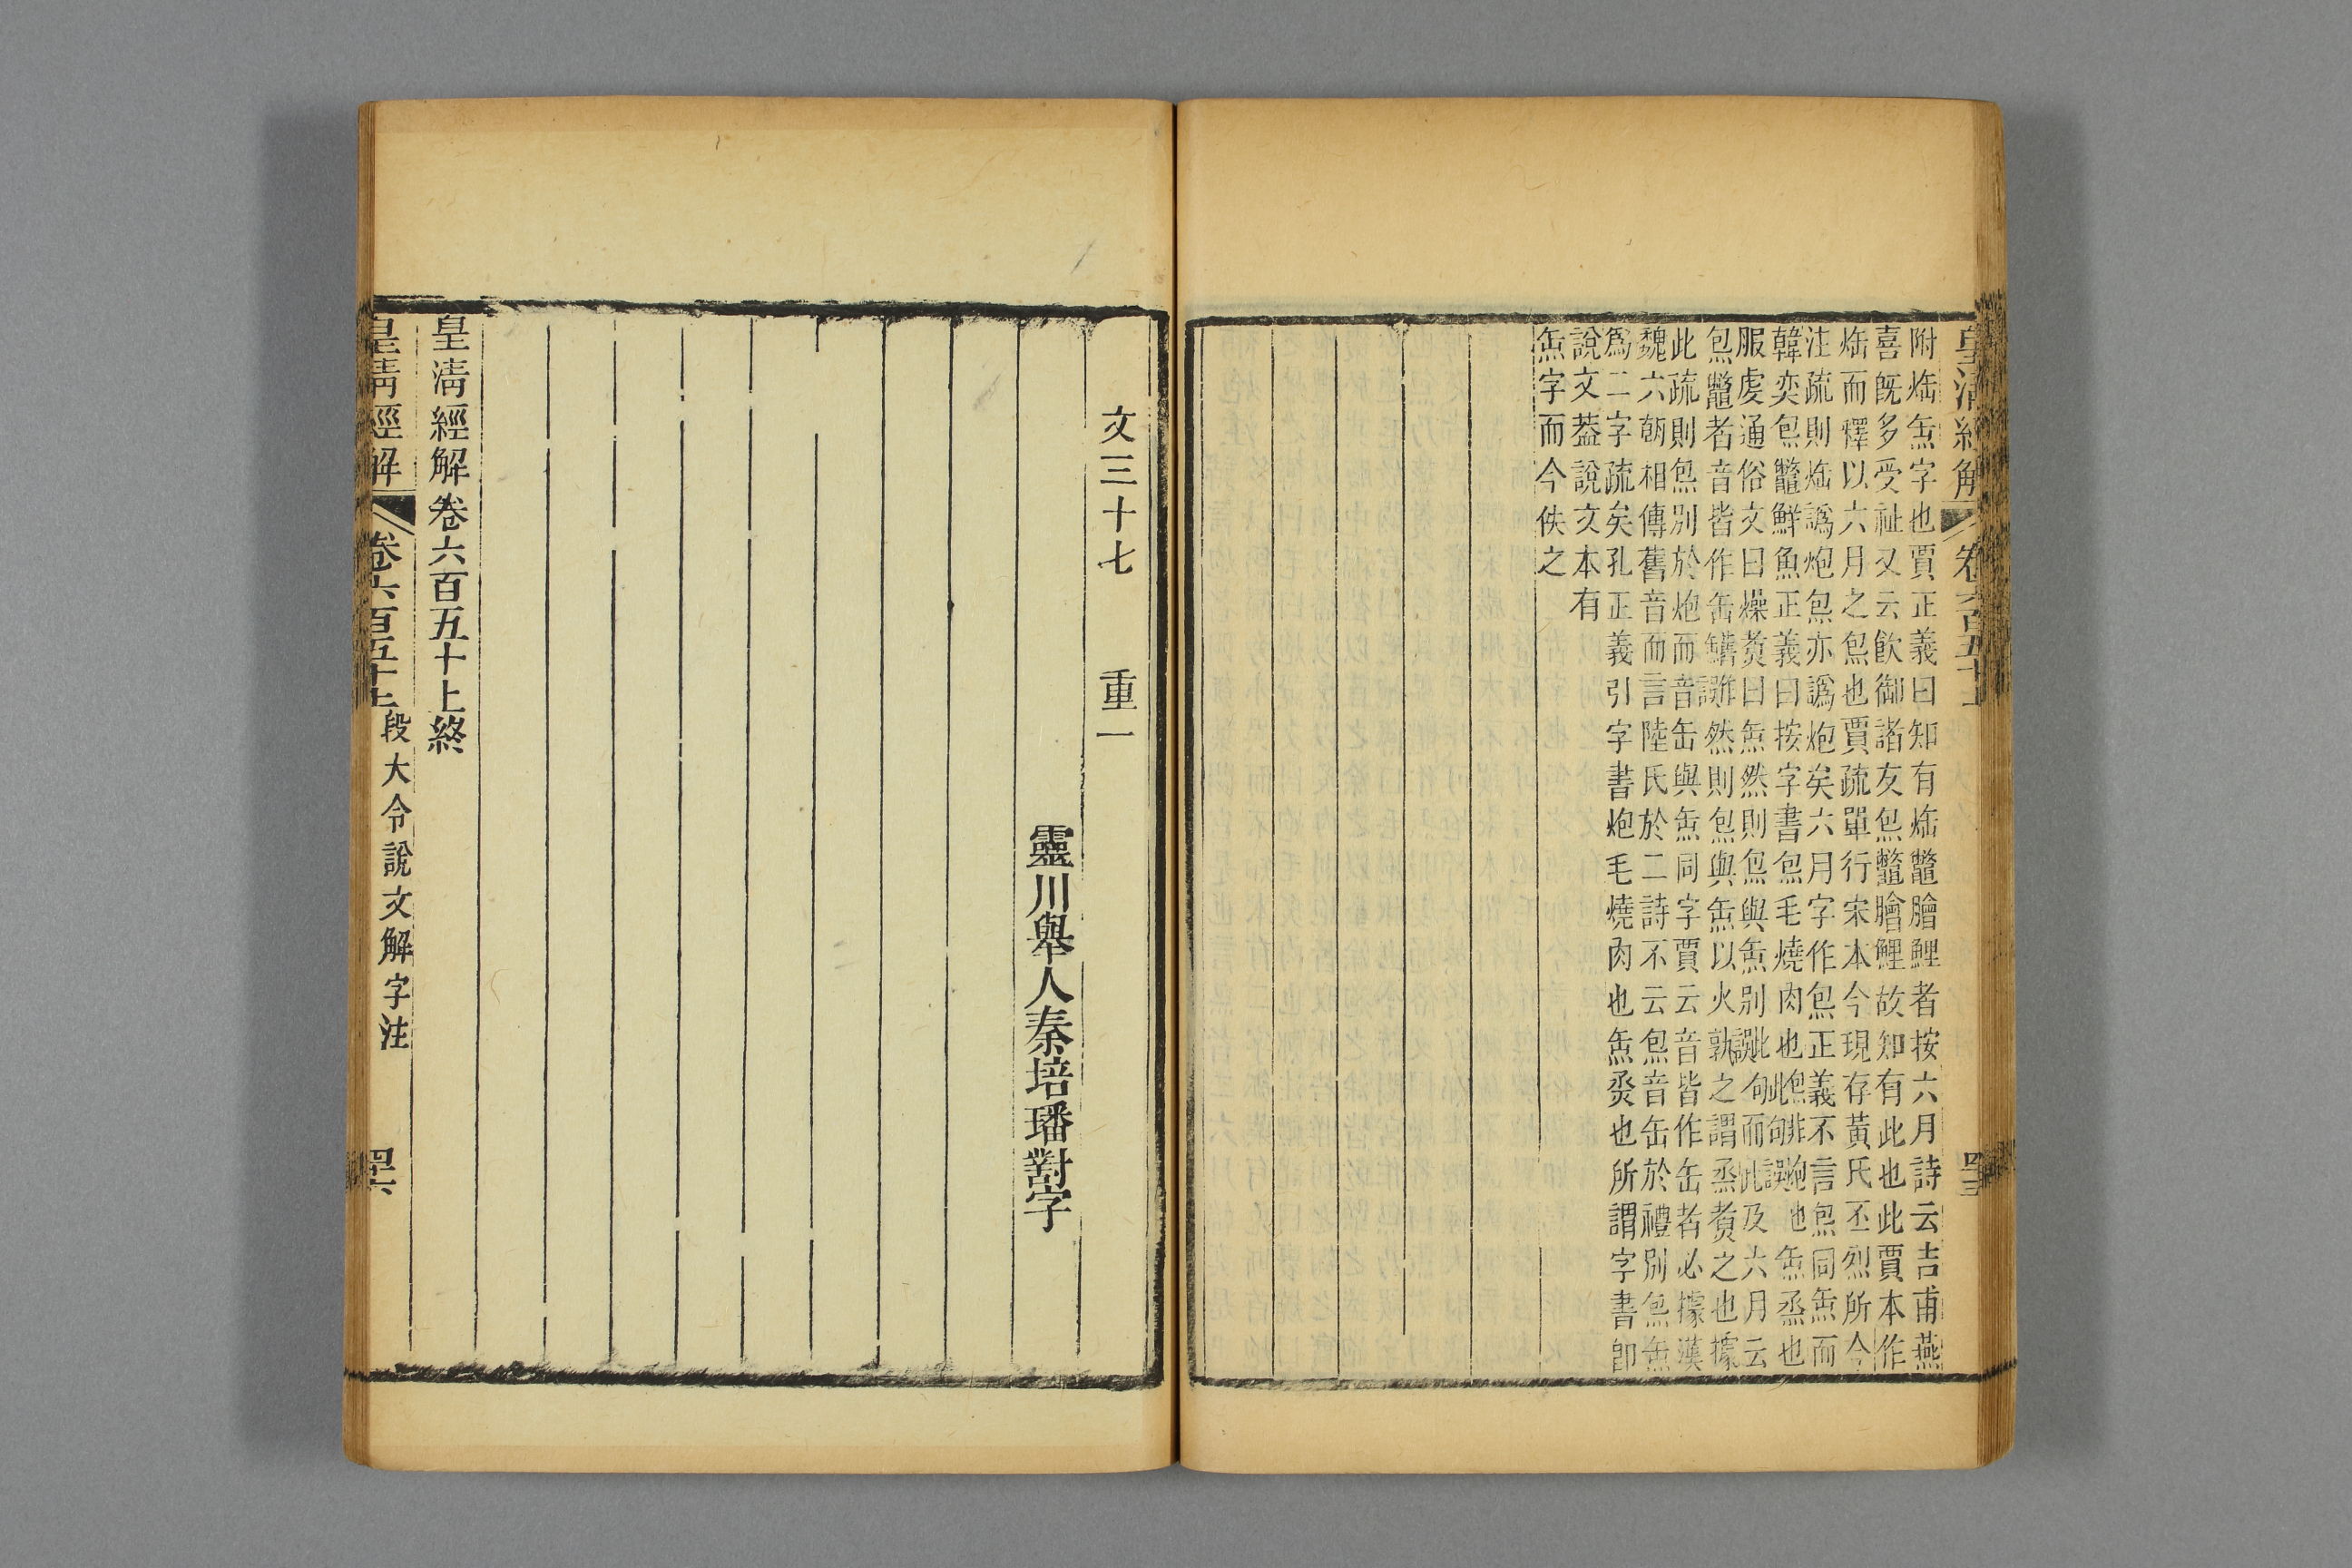 皇清經解 卷六百五十上 四十五
附𤇭缹字也賈正義曰知有𤇭鼈膾鯉者按六月詩云吉甫燕
喜旣多受祉又云飮御諸友炰鼈膾鯉故知有此也此賈本作
𤇭而釋以六月之炰也賈疏單行宋本今現存黃氏丕烈所今
注疏則𤇭譌炮炰亦譌炮矣六月字作炰正義不言炰同缹而
韓奕炰鼈鮮魚正義曰按字書炰毛燒肉也此炰非炮也此句誤缹烝也
服虔通俗文曰燥煑曰缹然則炰與缹別此句誤而此及六月云
炰鼈者音皆作缶誤作然則炰與缹以火孰之謂烝煑之也據
此疏則炰別於炮而音缶與缹同字賈云音皆作缶者必據漢
魏六朝相傳舊音而言陸氏於二詩不云炰音缶於禮別炰缹
爲二字疏矣孔正義引字書炮毛燒肉也缹烝也所謂字書卽
說文葢說文本有
缹字而今佚之
文三十七 重一
靈川舉人秦培璠對字
皇淸經解卷六百五十上終
皇淸經解 卷六百五十上 段大令說文解字注 四十六